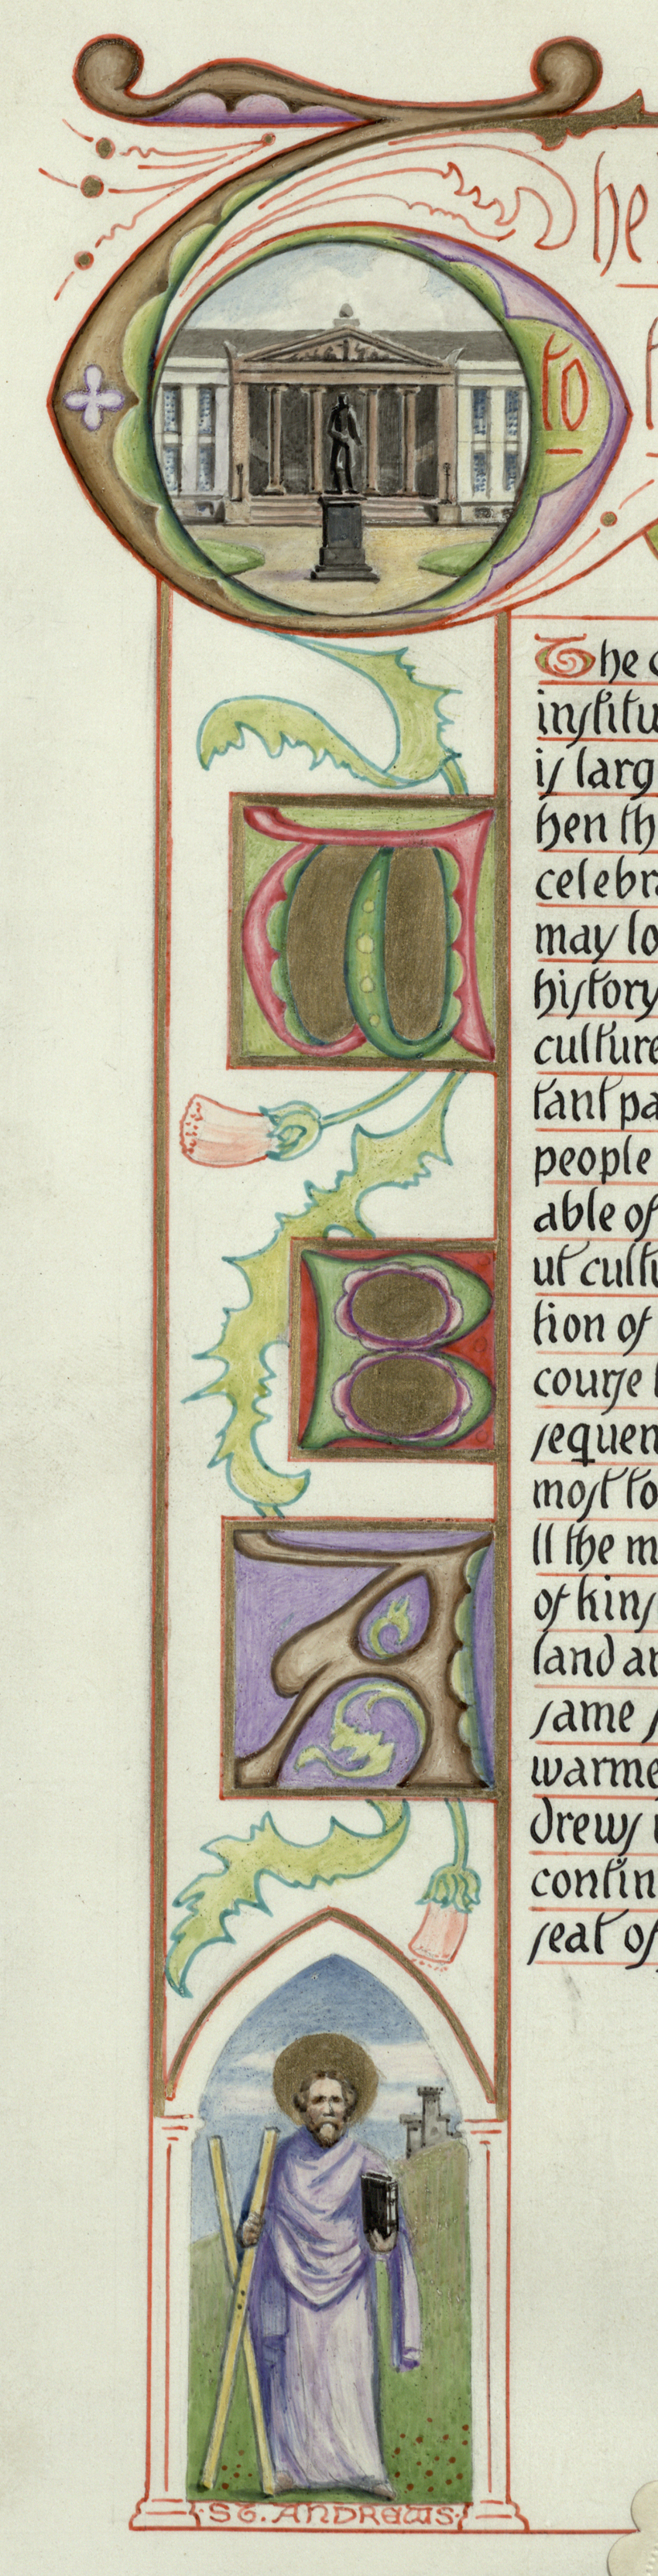 The
to
The
institu
is larg
hen th
celebra
may lo
history
culture
tant pa
people
able of
ut cultu
tion of
course
sequen
most to
ll the m
of kins
land an
same s
warme
drews
contin
seat of
W
B
A
·ST. ANDREWS·